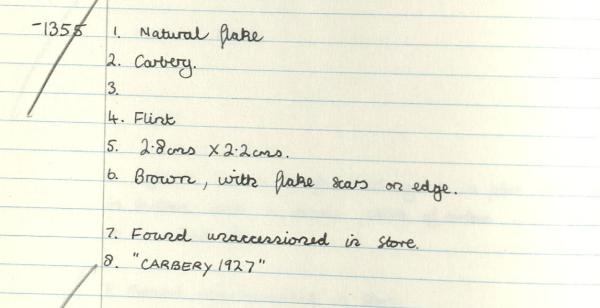 -1355 1. Natural flake
2. Carbery.
3.
4. Flint
5. 2.8cms X 2.2cms.
6. Brown, with flake scars on edge.
7. Found unaccessioned in store.
8. "CARBERY 1927"